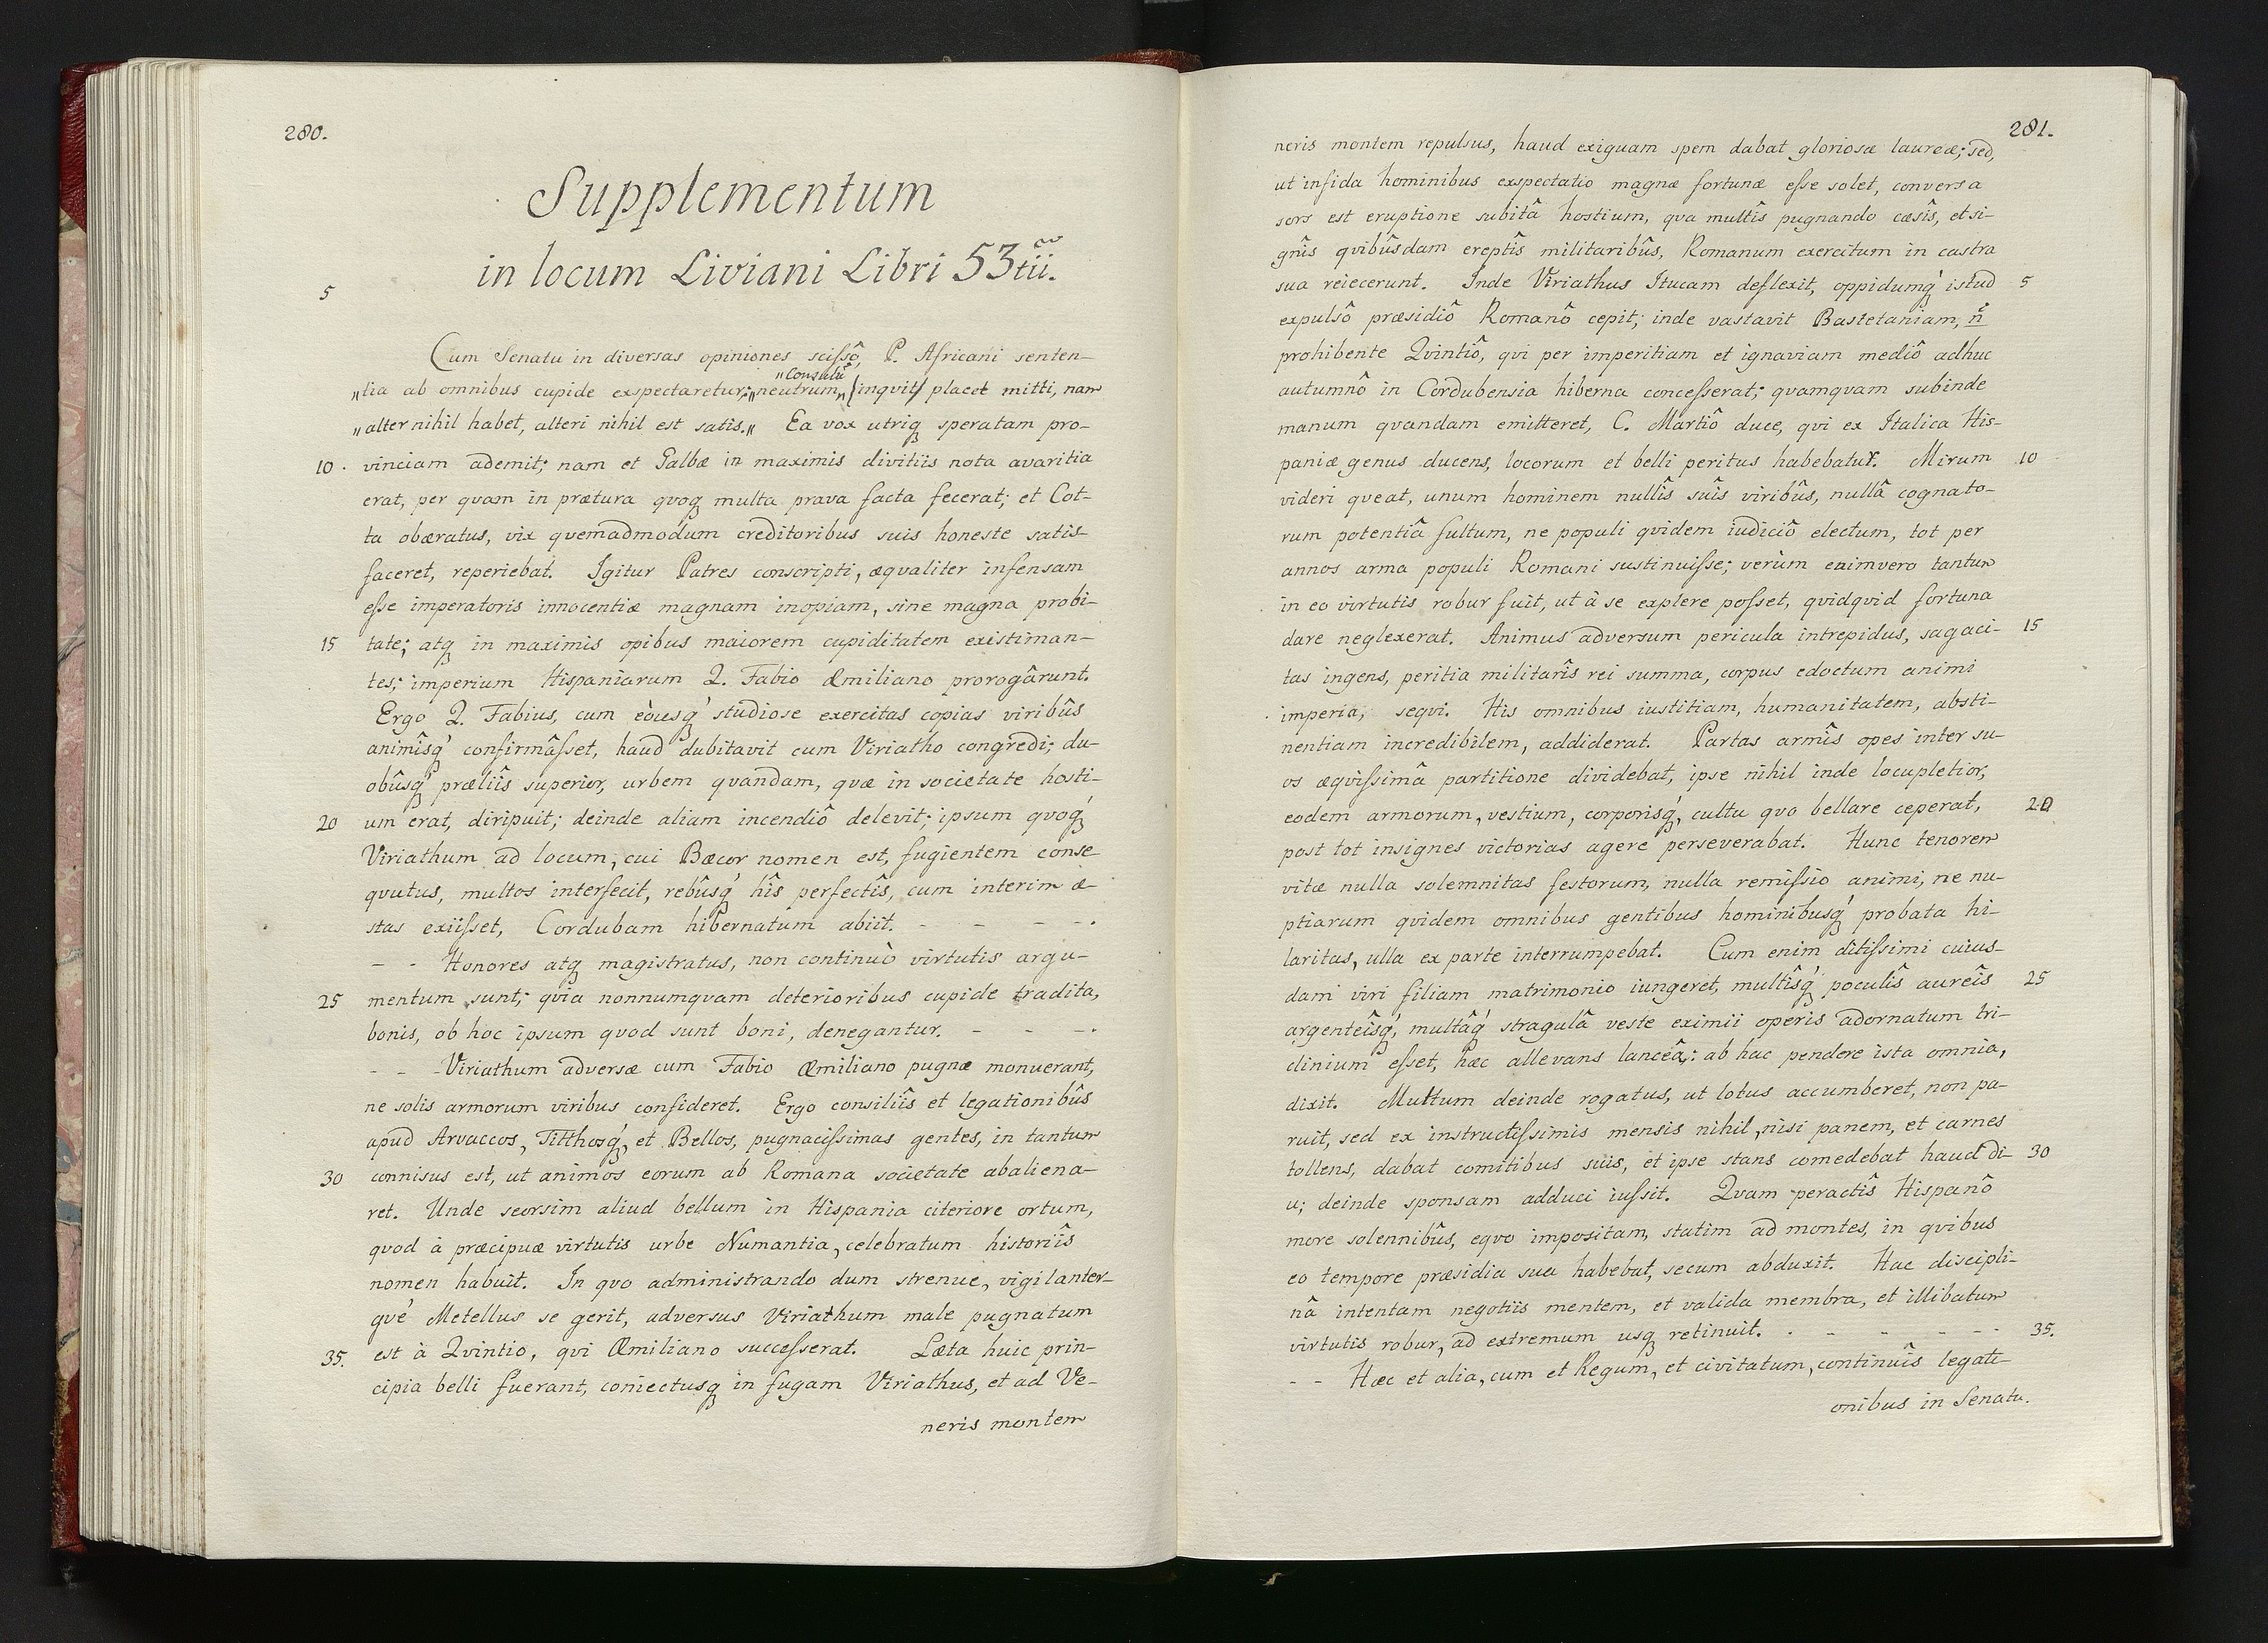 280.
Supplementum
in locum Liviani Libri 53tii.
5
Cum Senatu in diversas opiniones scisso, P. Africani senten-
„tia ab omnibus cupide exspectaretur; „neutrum„ „Consulū (inqvit) placet mitti, nam
„alter nihil habet, alteri nihil est satis.„ Ea vox utriq speratam pro-
10. vinciam ademit; nam et Galbæ in maximis divitiis nota avaritia
erat, per qvam in prætura qvoq multa prava facta fecerat; et Cot-
ta obæratus, vix qvemadmodum creditoribus suis honeste satis-
faceret, reperiebat. Igitur Patres conscripti, æqvaliter infensam
esse imperatoris innocentiæ magnam inopiam, sine magna probi-
15 tate; atq in maximis opibus maiorem cupiditatem existiman-
tes; imperium Hispaniarum Q. Fabio Æmiliano prorogârunt.
Ergo Q. Fabius, cum èousq́ studiose exercitas copias viribûs
animîsq́ confirmâsset, haud dubitavit cum Viriatho congredi; du-
obûsq́ præliîs superior, urbem qvandam, qvæ in societate hosti-
20 um erat, diripuit; deinde aliam incendiô delevit; ipsum qvoq́
Viriathum ad locum, cui Bæcor nomen est, fugientem conse
qvutus, multos interfecit, rebûsq́ hîs perfectîs, cum interim æ-
stas exiîsset, Cordubam hibernatum abiit. - - - -.
- - Honores atq magistratus, non continuò virtutis argu-
25 mentum sunt; qvia nonnumqvam deterioribus cupide tradita,
bonis, ob hoc ipsum qvod sunt boni, denegantur. - - -.
- - -Viriathum adversæ cum Fabio Æmiliano pugnæ monuerant,
ne solis armorum viribus confideret. Ergo consiliîs et legationibûs
apud Arvaccos, Titthosq́, et Bellos, pugnacissimas gentes, in tantum
30 connisus est, ut animos eorum ab Romana societate abaliena-
ret. Unde seorsim aliud bellum in Hispania citeriore ortum,
qvod à præcipuæ virtutis urbe Numantia, celebratum historiîs
nomen habuit. In qvo administrando dum strenue, vigilanter-
qvé Metellus se gerit, adversus Viriathum male pugnatum
35. est à Qvintio, qvi Æmiliano successerat. Læta huic prin-
cipia belli fuerant, coniectusq in fugam Viriathus, et ad Ve-
neris montem
281.
neris montem repulsus, haud exiguam spem dabat gloriosæ laureæ; sed,
ut infida hominibus exspectatio magnæ fortunæ esse solet, conversa
sors est eruptione subitâ hostium, qva multîs pugnando cæsîs, et si-
gnîs qvibûsdam ereptîs militaribûs, Romanum exercitum in castra
sua reiecerunt. Inde Viriathus Itucam deflexit, oppidumq́ istud 5
expulsô præsidiô Romanô cepit; inde vastavit Bastetaniam, n̊
prohibente Qvintiô, qvi per imperitiam et ignaviam mediô adhuc
autumnô in Cordubensia hiberna concesserat; qvamqvam subinde
manum qvandam emitteret, C. Martiô duce, qvi ex Italica His-
paniæ genus ducens, locorum et belli peritus habebatur. Mirum 10
videri qveat, unum hominem nullîs suîs viribûs, nullâ cognato-
rum potentiâ fultum, ne populi qvidem iudiciô electum, tot per
annos arma populi Romani sustinuisse; verùm enimvero tantum
in eo virtutis robur fuit, ut à se explere posset, qvidqvid fortuna
dare neglexerat. Animus adversum pericula intrepidus, sagaci- 15
tas ingens, peritia militarîs rei summa, corpus edoctum animi
imperia, seqvi. His omnibus iustitiam, humanitatem, absti-
nentiam incredibilem, addiderat. Partas armîs opes inter su-
os æqvissimâ partitione dividebat, ipse nihil inde locupletior;
eodem armorum, vestium, corporisq́, cultu qvo bellare ceperat, 20
post tot insignes victorias agere perseverabat. Hunc tenorem
vitæ nulla solemnitas festorum, nulla remissio animi, ne nu-
ptiarum qvidem omnibus gentibus hominibusq́ probata hi-
laritas, ulla ex parte interrumpebat. Cum enim ditissimi cuius-
dam viri filiam matrimonio iungeret, multîsq́ poculîs aureîs 25
argenteîsq́, multâq́ stragulâ veste eximii operis adornatum tri-
clinium esset, hæc allevans lanceâ,: ab hac pendere ista omnia,
dixit. Multum deinde rogatus, ut lotus accumberet, non pa-
ruit, sed ex instructissimis mensis nihil, nisi panem, et carnes
tollens, dabat comitibus suis, et ipse stans comedebat haud di- 30
u; deinde sponsam adduci iussit. Qvam peractîs Hispanô
more solennibûs, eqvo impositam, statim ad montes, in qvibus
eo tempore præsidia sua habebat, secum abduxit. Hac discipli-
nâ intentam negotiis mentem, et valida membra, et illibatum
virtutis robur, ad extremum usq retinuit. . - - - - - 35.
- - Hæc et alia, cum et Regum, et civitatum, continuîs legati-
onibus in Senatu.